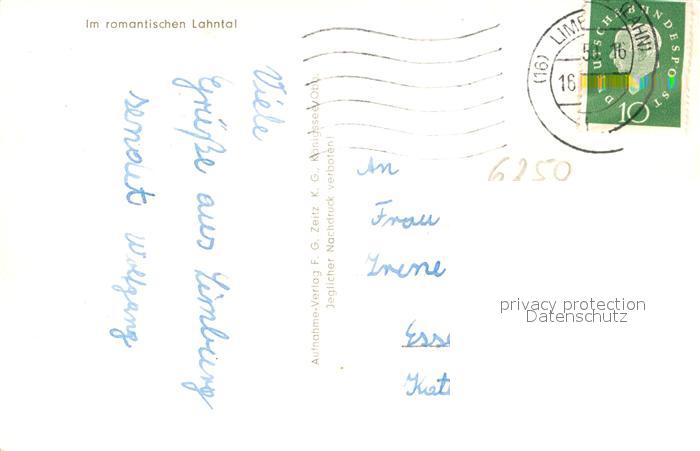 Im romantischen Lahntal
Viele
Grüße aus Limburg
sendet Wolfgang
Aufnahme-Verlag F. G. Zeitz K. G., Königssee/Obb.
Jeglicher Nachdruck verboten!
(16) LIMB (LAHN)
16
DEUTSCHE BUNDESPOST
10
6250
An
Frau
Irene
Ess
privacy protection
Datenschutz